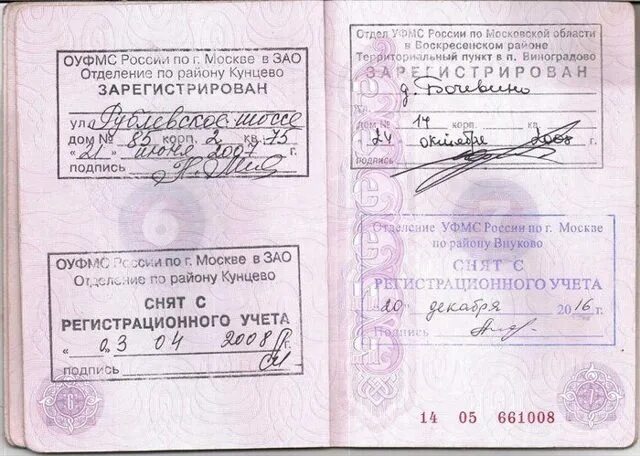 ОУФМС России по г. Москве в ЗАО
Отделение по району Кунцево
ЗАРЕГИСТРИРОВАН
ул Рублевское шоссе
дом № 85 корп. 2 кв. 75
"21" июня 2007 г.
подпись
ОУФМС России по г. Москве в ЗАО
Отделение по району Кунцево
СНЯТ С
РЕГИСТРАЦИОННОГО УЧЕТА
" 03 04 2008 г.
подпись
6
Отдел УФМС России по Московской области
в Воскресенском районе
Территориальный пункт в п. Виноградово
ЗАРЕГИСТРИРОВАН
д.
ул.
дом № 14 корп. кв.
24 октября 2008
подпись
Отделение УФМС России по г. Москве
по району Внуково
СНЯТ С
РЕГИСТРАЦИОННОГО УЧЕТА
"20" декабря 2016 г.
Подпись
14 05 661008